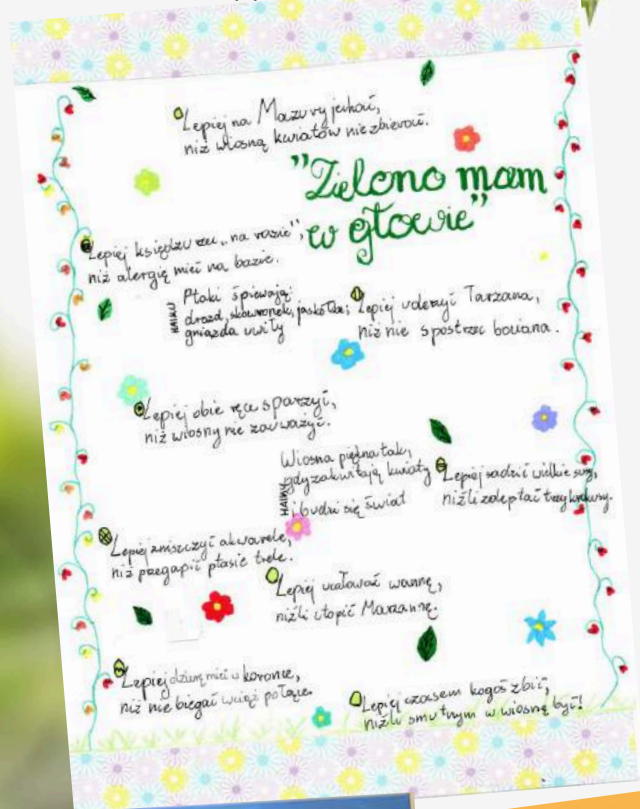 Lepiej na Mazury jechać,
niż wiosną kwiatów nie zbierać.
"Zielono mam
w głowie"
Lepiej księdzu rzec „na razie",
niż alergię mieć na bazie.
HAIKU
Ptaki śpiewają:
drozd, skowronek, jaskółka;
gniazda uwiły
Lepiej uderzyć Tarzana,
niż nie spostrzec bociana.
Lepiej obie ręce sparzyć,
niż wiosny nie zauważyć.
HAIKU
Wiosna piękna tak,
gdy zakwitają kwiaty
i budzi się świat
Lepiej sadzić wielkie
niźli zdeptać trzy krokusy.
Lepiej zniszczyć akwarele,
niż przegapić ptasie trele.
Lepiej ucałować wannę,
niźli utopić Marzannę.
Lepiej dziurę mieć w koronce,
niż nie biegać wciąż po łące.
Lepiej czasem kogoś zbić,
niźli smutnym w wiosnę być!